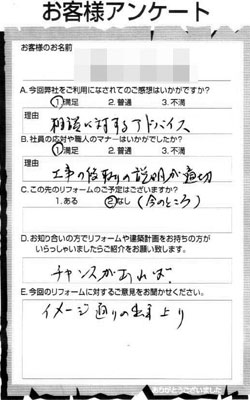 お客様アンケート
お客様のお名前
A. 今回弊社をご利用になされてのご感想はいかがですか?
①満足 2. 普通 3. 不満
理由
相談に対するアドバイス
B. 社員の応対や職人のマナーはいかがでしたか?
①満足 2. 普通 3. 不満
理由
工事の段取りの説明が適切
C. この先のリフォームのご予定はございますか?
1. ある ②なし (今のところ)
D. お知り合いの方でリフォームや建築計画をお持ちの方が
いらっしゃいましたらご紹介をお願い致します。
チャンスがあれば!
E. 今回のリフォームに対するご意見をお聞かせください。
イメージ通りの出来上り
ありがとうございました